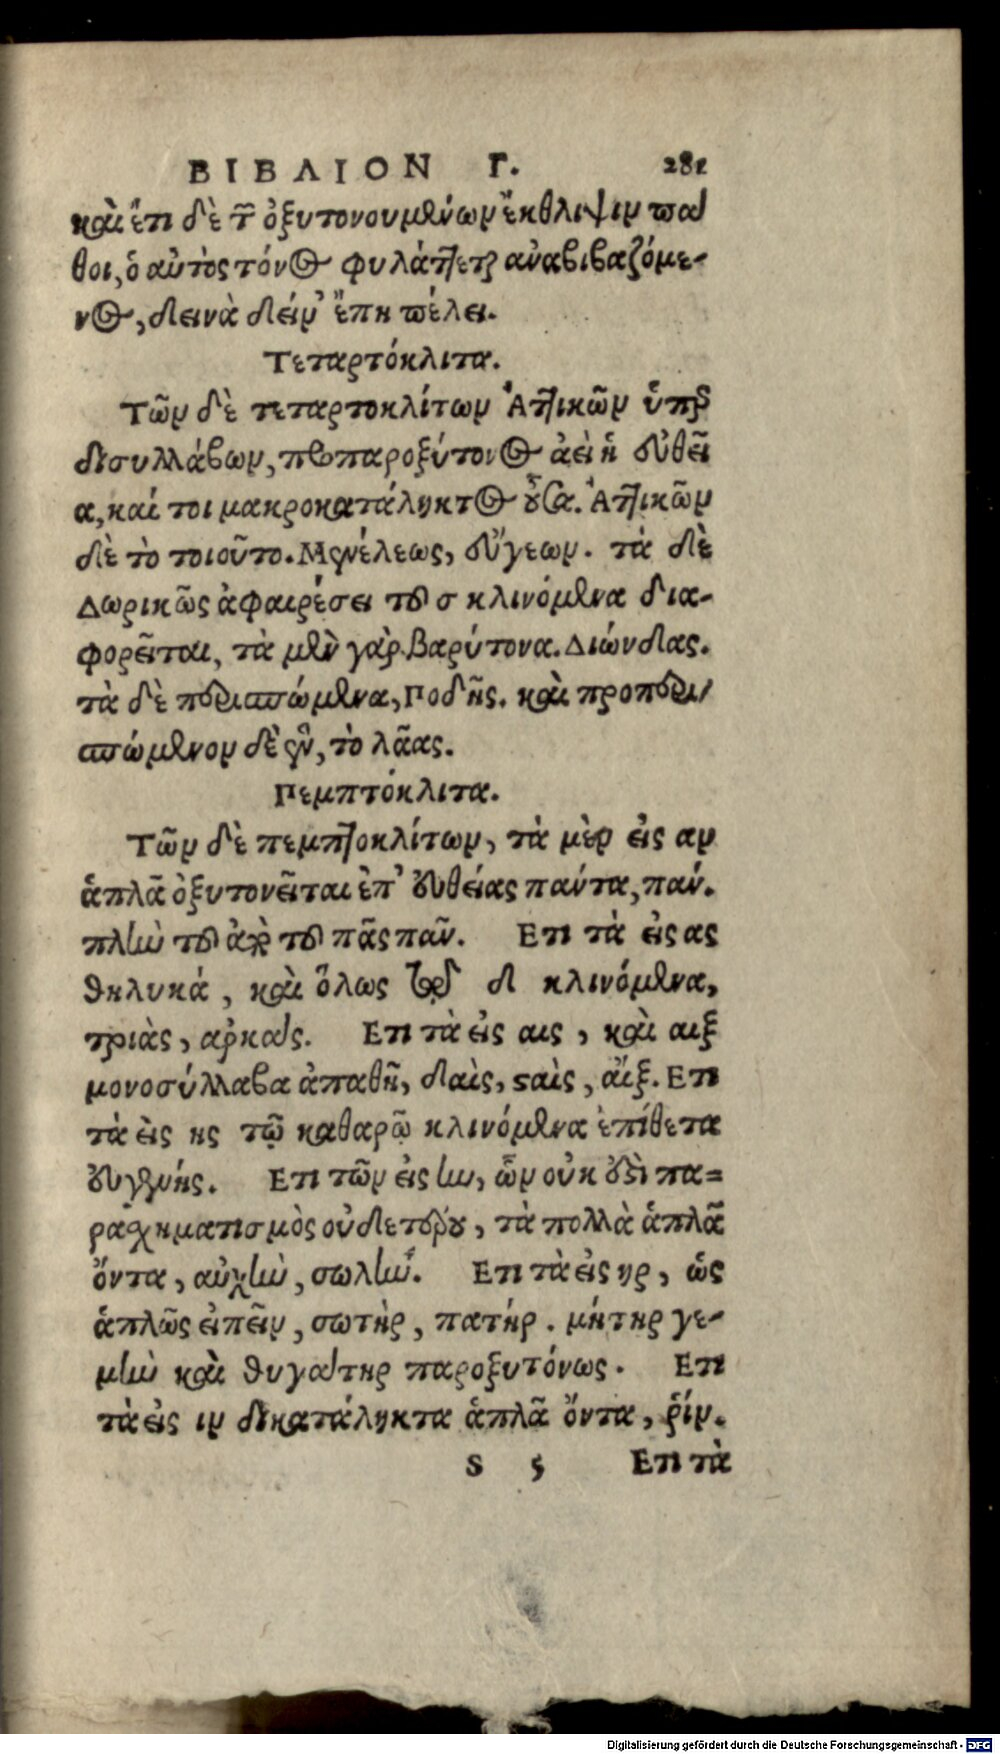 ΒΙΒΛΙΟΝ Γ. 281
καὶ ἔτι δὲ τῶν ὀξυτονουμένων ἔκθλιψιν πά
θοι, ὁ αὐτὸς τόνος φυλάττεται ἀναβιβαζόμε-
νος, δεινὰ δείν' ἔπη πέλει.
Τεταρτόκλιτα.
Τῶν δὲ τεταρτοκλίτων Ἀττικῶν ὑπὲρ
δισυλλάβων, προπαροξύτονος ἀεὶ ἡ εὐθεῖ
α, καί τοι μακροκατάληκτος οὖσα. Ἀττικῶν
δὲ τὸ τοιοῦτο. Μενέλεως, εὔγεων. τὰ δὲ
Δωρικῶς ἀφαιρέσει τοῦ σ κλινόμενα δια-
φορεῖται, τὰ μὲν γὰρ βαρύτονα. Διώνδας.
τὰ δὲ περισπώμενα, Ποδῆς. καὶ προπερι/
σπώμενον δὲ ἓν, τὸ λᾶας.
Πεμπτόκλιτα.
Τῶν δὲ πεμπτοκλίτων, τὰ μὲν εἰς αν
ἁπλᾶ ὀξυτονεῖται ἐπ' εὐθείας πάντα, πάν.
πλὴν τοῦ ἀπὸ τοῦ πᾶς πᾶν. Ετι τὰ εἰς ας
θηλυκά, καὶ ὅλως διὰ δ κλινόμενα,
τριὰς, ἀρκάς. Ετι τὰ εἰς αις, καὶ αιξ
μονοσύλλαβα ἀπαθῆ, δαὶς, σαὶς, ἄιξ. Ετι
τὰ εἰς ης τῷ καθαρῷ κλινόμενα ἐπίθετα
εὐγενής. Ετι τῶν εἰς ην, ὧν οὐκ ἔστι πα=
ρασχηματισμὸς οὐδετέρου, τὰ πολλὰ ἁπλᾶ
ὄντα, αὐχὴν, σωλήν. Ετι τὰ εἰς ηρ, ὡς
ἁπλῶς εἰπεῖν, σωτὴρ, πατήρ. μήτηρ γε-
μὴν καὶ θυγάτηρ παροξυτόνως. Ετι
τὰ εἰς ιν δικατάληκτα ἁπλᾶ ὄντα, ῥίν.
S 5 Ετι τὰ
Digitalisierung gefördert durch die Deutsche Forschungsgemeinschaft - DFG